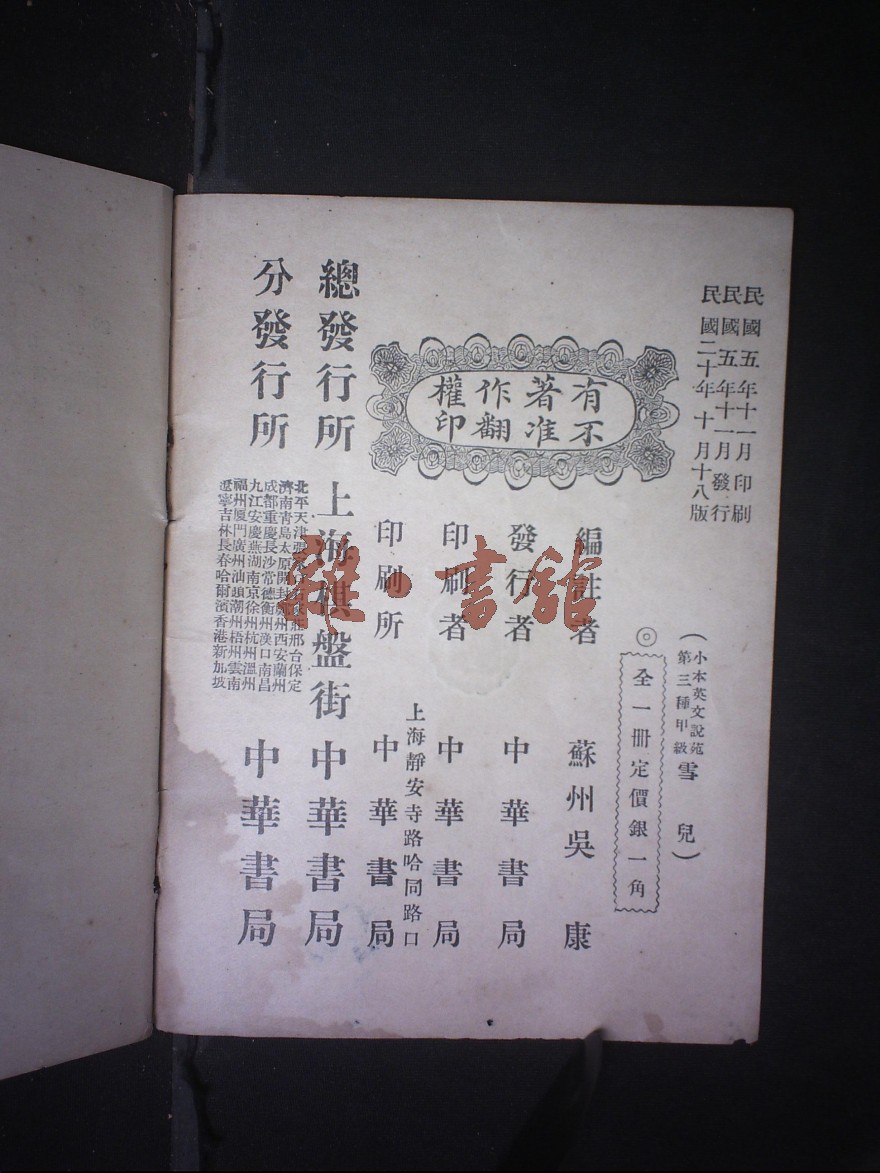 民國五年十一月印刷
民國五年十一月發行
民國二十年十月十八版
小本英文說苑
第三種甲級
(雪兒)
◎全一冊定價銀一角
有著作權
不准翻印
編註者 蘇州吳康
發行者 中華書局
印刷者 中華書局
上海靜安寺路哈同路口
印刷所 中華書局
總發行所 上海棋盤街 中華書局
分發行所 中華書局
北平天津張 邢台保定
濟南青島太原開封鄭州西安蘭州
成都重慶長沙常德衡州漢口南昌
九江安慶蕪湖南京徐州杭州溫州
福州廈門廣州汕頭潮州梧州雲南
遼寧吉林長春哈爾濱香港新加坡
雜·書館